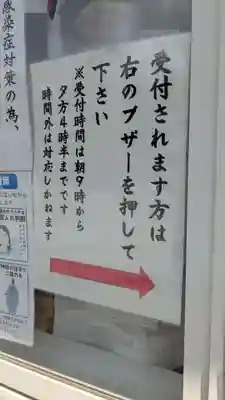 感染症対策の為、
受付されます方は
右のブザーを押して
下さい
※受付時間は朝9時から
夕方4時半までです
時間外は対応しかねます